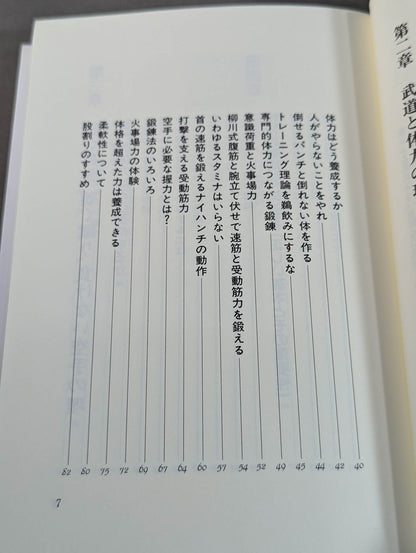 第二章 武道と体力の
体力はどう養成するか 40
人がやらないことをやれ 42
倒せるパンチと倒れない体を作る 44
トレーニング理論を鵜飲みにするな 45
専門的体力につながる鍛錬 49
意識荷重と火事場力 52
柳川式腹筋と腕立て伏せで速筋と受動筋力を鍛える 54
いわゆるスタミナはいらない 57
首の速筋を鍛えるナイハンチの動作 60
打撃を支える受動筋力 64
空手に必要な握力とは? 67
鍛錬法のいろいろ 69
火事場力の体験 72
体格を超えた力は養成できる 75
柔軟性について 80
股割りのすすめ 82
7